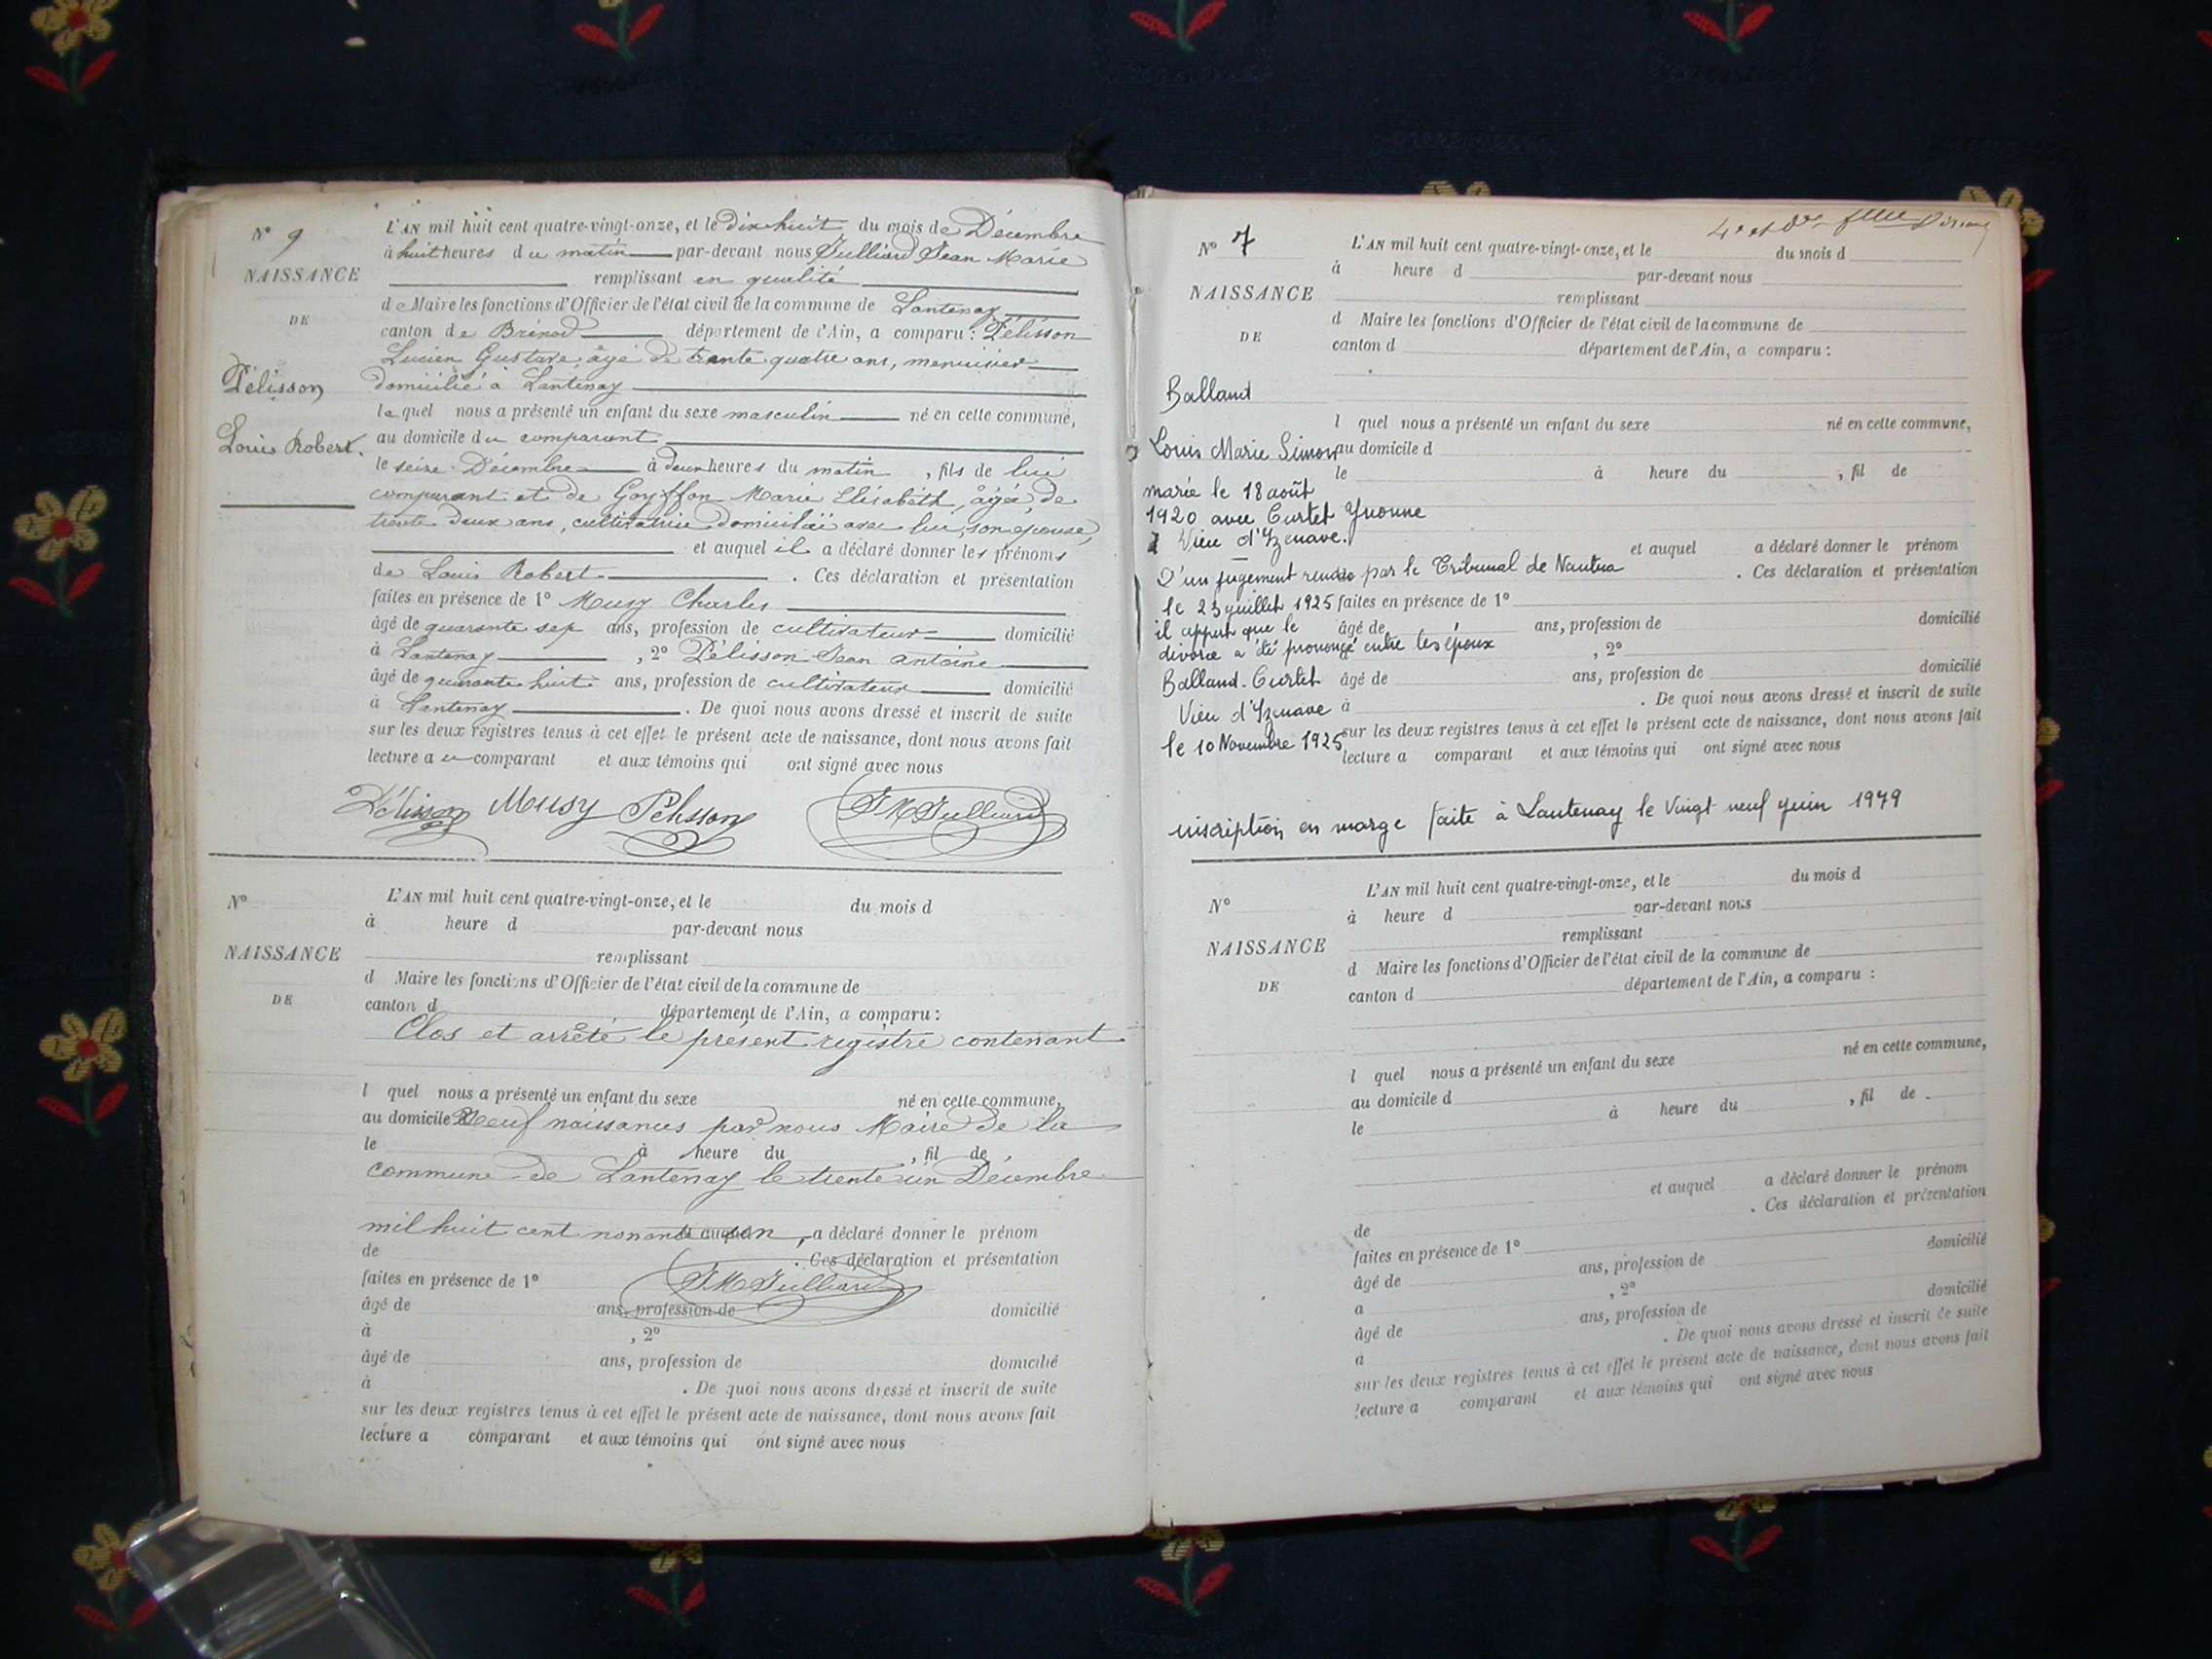 N° 9
NAISSANCE
DE
Pélisson
Louis Robert.
L'AN mil huit cent quatre-vingt-onze, et le Dix huit du mois de Décembre
à huit heures du matin par-devant nous Julliard Jean Marie
remplissant en qualité
de Maire les fonctions d'Officier de l'état civil de la commune de Lantenay
canton de Brénod département de l'Ain, a comparu : Pélisson
Lucien Gustave âgé de trente quatre ans, menuisier
domicilié à Lantenay
lequel nous a présenté un enfant du sexe masculin né en cette commune,
au domicile du comparant
le seize Décembre à deux heures du matin, fils de lui
comparant et de Goyffon Marie Elisabeth, âgée de
trente deux ans, cultivatrice domiciliée avec lui, son épouse,
et auquel il a déclaré donner les prénoms
de Louis Robert. . Ces déclaration et présentation
faites en présence de 1° Musy Charles
âgé de quarante sep ans, profession de cultivateur domicilié
à Lantenay , 2° Pélisson Jean antoine
âgé de quarante huit ans, profession de cultivateur domicilié
à Lantenay . De quoi nous avons dressé et inscrit de suite
sur les deux registres tenus à cet effet le présent acte de naissance, dont nous avons fait
lecture au comparant et aux témoins qui ont signé avec nous
Pélisson Musy Pélisson JM Julliard
N°
NAISSANCE
DE
L'AN mil huit cent quatre-vingt-onze, et le du mois d
à heure d par-devant nous
remplissant
d Maire les fonctions d'Officier de l'état civil de la commune de
canton d département de l'Ain, a comparu :
Clos et arrêté le présent registre contenant
l quel nous a présenté un enfant du sexe né en cette commune,
au domicile d Neuf naissances par nous Maire de la
le à heure du , fil de
commune de Lantenay le trente un Décembre
mil huit cent nonante un a déclaré donner le prénom
de . Ces déclaration et présentation
faites en présence de 1° JM Julliard
âgé de ans, profession de domicilié
à , 2°
âgé de ans, profession de domicilié
à . De quoi nous avons dressé et inscrit de suite
sur les deux registres tenus à cet effet le présent acte de naissance, dont nous avons fait
lecture a comparant et aux témoins qui ont signé avec nous
4e et
N° 7
NAISSANCE
DE
Balland
Louis Marie Simon
marié le 18 août
1920 avec Curtet Yvonne
à Vieu d'Izenave.
D'un jugement rendu par le Tribunal de Nantua
le 23 juillet 1925
il appert que le
divorce a été prononcé entre les époux
Balland-Curtet
Vieu d'Izenave
le 10 Novembre 1925
L'AN mil huit cent quatre-vingt-onze, et le du mois d
à heure d par-devant nous
remplissant
d Maire les fonctions d'Officier de l'état civil de la commune de
canton d département de l'Ain, a comparu :
l quel nous a présenté un enfant du sexe né en cette commune,
au domicile d
le à heure du , fil de
et auquel a déclaré donner le prénom
. Ces déclaration et présentation
faites en présence de 1°
âgé de ans, profession de domicilié
, 2°
âgé de ans, profession de domicilié
à . De quoi nous avons dressé et inscrit de suite
sur les deux registres tenus à cet effet le présent acte de naissance, dont nous avons fait
lecture a comparant et aux témoins qui ont signé avec nous
inscription en marge faite à Lantenay le Vingt neuf juin 1979
N°
NAISSANCE
DE
L'AN mil huit cent quatre-vingt-onze, et le du mois d
à heure d par-devant nous
remplissant
d Maire les fonctions d'Officier de l'état civil de la commune de
canton d département de l'Ain, a comparu :
l quel nous a présenté un enfant du sexe né en cette commune,
au domicile d
le à heure du , fil de
et auquel a déclaré donner le prénom
de . Ces déclaration et présentation
faites en présence de 1°
âgé de ans, profession de domicilié
a , 2°
âgé de ans, profession de domicilié
a . De quoi nous avons dressé et inscrit de suite
sur les deux registres tenus à cet effet le présent acte de naissance, dont nous avons fait
lecture a comparant et aux témoins qui ont signé avec nous